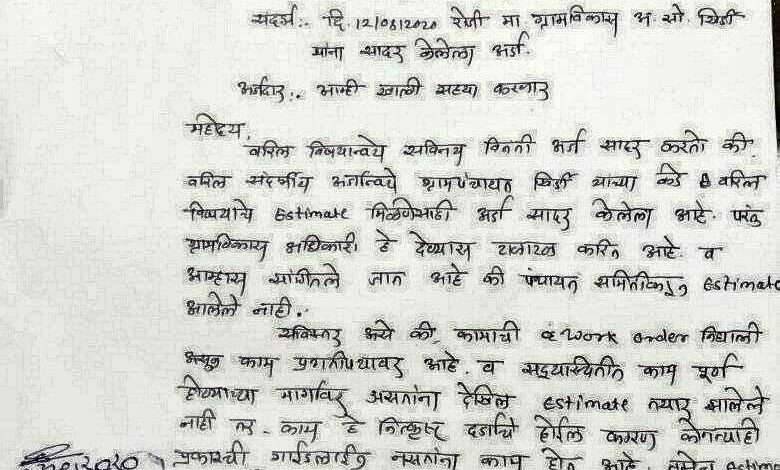 संदर्भ:. दि. 12/08/2020 रोजी मा. ग्रामविकास अ. सो. खिर्डी
यांना सादर केलेला अर्ज.
अर्जदार:. आम्ही खाली सह्या करणार
महोदय,
वरिल विषयान्वये सविनय विनंती अर्ज सादर करतो की,
वरिल संदर्भीय अर्जान्वये ग्रामपंचायत खिर्डी यांच्या कडे वरिल
विषयाचे Estimate मिळणेसाठी अर्ज सादर केलेला आहे. परंतु
ग्रामविकास अधिकारी हे देण्यास टाळाटाळ करित आहे. व
आम्हास सांगितले जात आहे की पंचायत समितीकडुन Estimate
आलेले नाही.
सविस्तर असे की, कामाची Work order निघाली
असून काम प्रगतीपथावर आहे. व सद्यास्थितीत काम पूर्ण
होण्याच्या मार्गावर असतांना देखिल Estimate तयार झालेले
नाही तर. काम हे निकृष्ट दर्जाचे होईल कारण कोणत्याही
प्रकारची गाईडलाईन नसतांना काम होत आहे